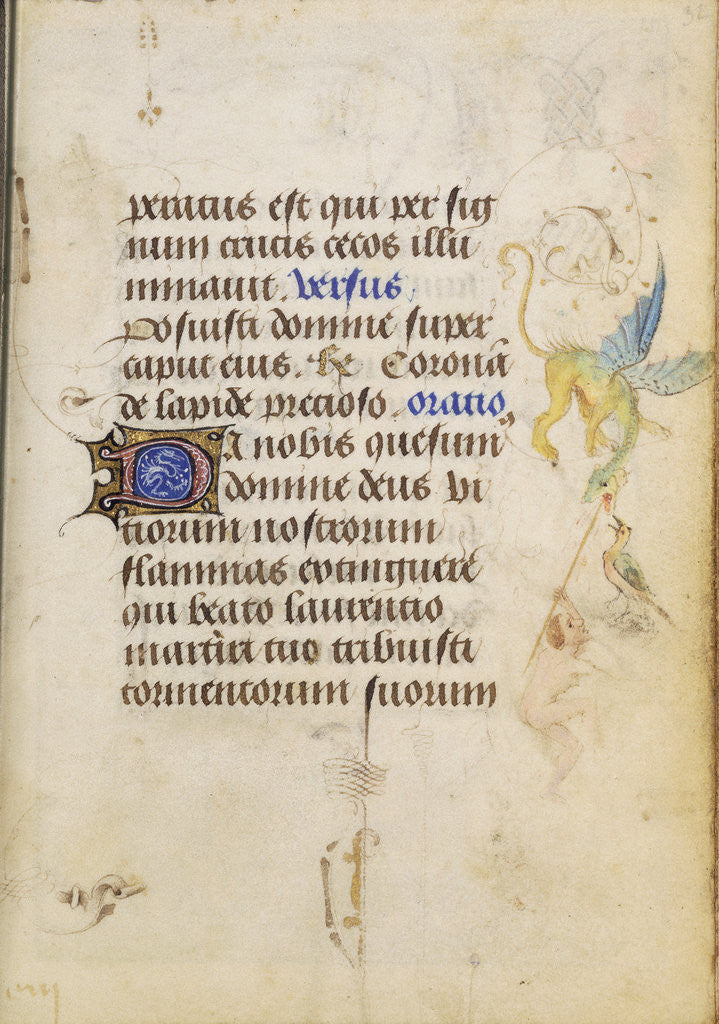 32
peratus est qui per sig
num crucis cecos illu
minauit. Versus
Posuisti domine super
caput eius. Re Coronā
de lapide precioso. oratio
Da nobis quesum⁹
domine deus vi
tiorum nostrorum
flammas extinguere
qui beato laurentio
martiri tuo tribuisti
tormentorum suorum